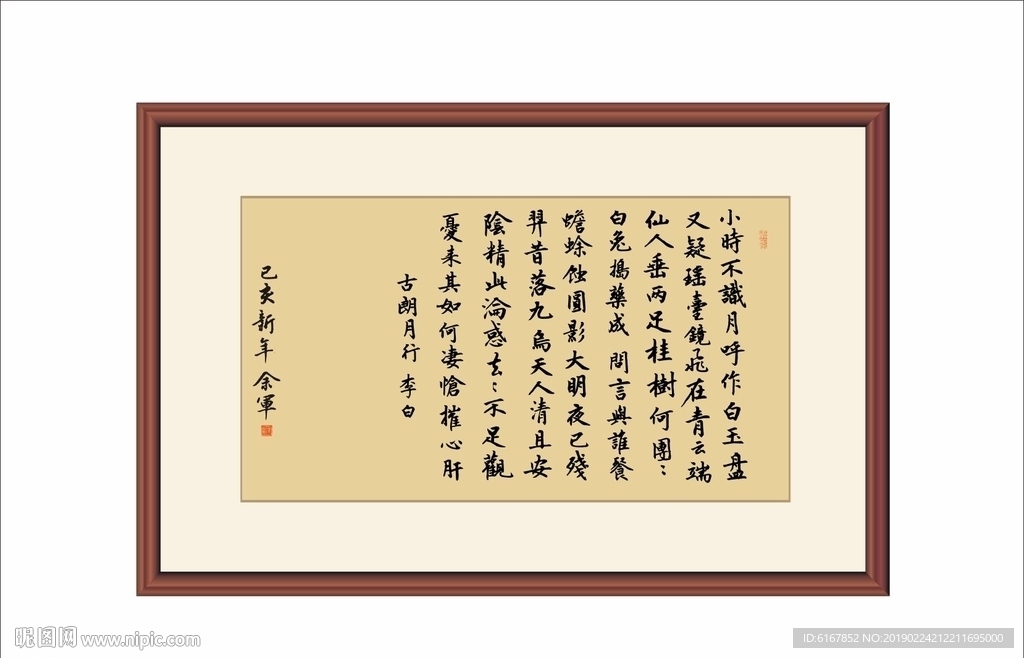 小時不識月呼作白玉盤
又疑瑶臺鏡飛在青云端
仙人垂兩足桂樹何團:
白兔搗藥成問言與誰餐
蟾蜍蝕圓影大明夜已殘
羿昔落九烏天人清且安
陰精此淪惑去:不足觀
憂来其如何凄愴摧心肝
古朗月行 李白
己亥新年 余軍
昵图网 www.nipic.com
ID:6167852 NO:20190224212211695000